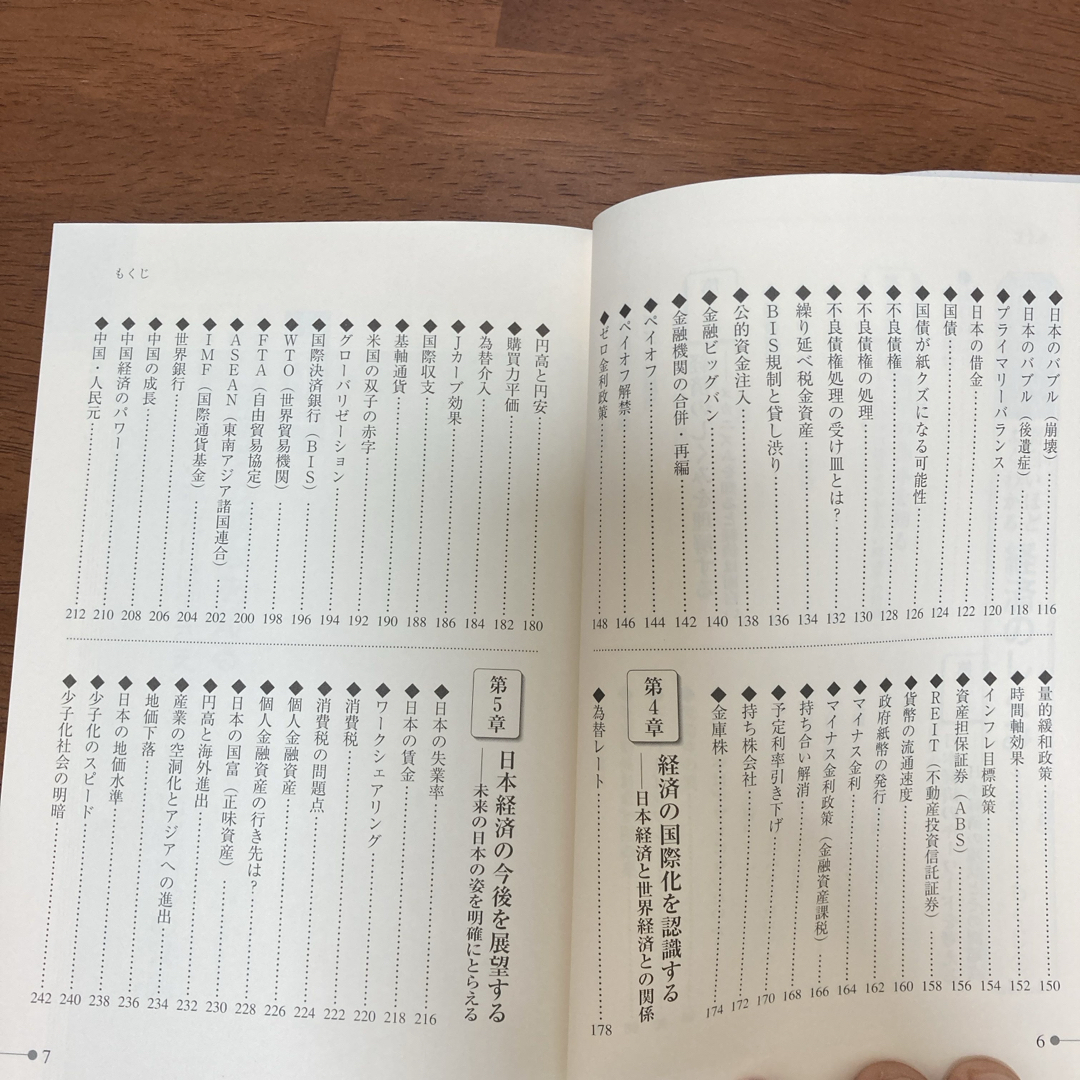 ◆日本のバブル（崩壊）……116
◆日本のバブル（後遺症）……118
◆プライマリーバランス……120
◆日本の借金……122
◆国債……124
◆国債が紙クズになる可能性……126
◆不良債権……128
◆不良債権の処理……130
◆不良債権処理の受け皿とは？……132
◆繰り延べ税金資産……134
◆BIS規制と貸し渋り……136
◆公的資金注入……138
◆金融ビッグバン……140
◆金融機関の合併・再編……142
◆ペイオフ……144
◆ペイオフ解禁……146
◆ゼロ金利政策……148
◆量的緩和政策……150
◆時間軸効果……152
◆インフレ目標政策……154
◆資産担保証券（ABS）……156
◆REIT（不動産投資信託証券）……158
◆貨幣の流通速度……160
◆政府紙幣の発行……162
◆マイナス金利……164
◆マイナス金利政策（金融資産課税）……166
◆持ち合い解消……168
◆予定利率引き下げ……170
◆持ち株会社……172
◆金庫株……174
第4章 経済の国際化を認識する
――日本経済と世界経済との関係
◆為替レート……178
6
もくじ
◆円高と円安……180
◆購買力平価……182
◆為替介入……184
◆Jカーブ効果……186
◆国際収支……188
◆基軸通貨……190
◆米国の双子の赤字……192
◆グローバリゼーション……194
◆国際決済銀行（BIS）……196
◆WTO（世界貿易機関）……198
◆FTA（自由貿易協定）……200
◆ASEAN（東南アジア諸国連合）……202
◆IMF（国際通貨基金）……204
◆世界銀行……206
◆中国の成長……208
◆中国経済のパワー……210
◆中国・人民元……212
第5章 日本経済の今後を展望する
――未来の日本の姿を明確にとらえる
◆日本の失業率……216
◆日本の賃金……218
◆ワークシェアリング……220
◆消費税……222
◆消費税の問題点……224
◆個人金融資産……226
◆個人金融資産の行き先は？……228
◆日本の国富（正味資産）……230
◆円高と海外進出……232
◆産業の空洞化とアジアへの進出……234
◆地価下落……236
◆日本の地価水準……238
◆少子化のスピード……240
◆少子化社会の明暗……242
7